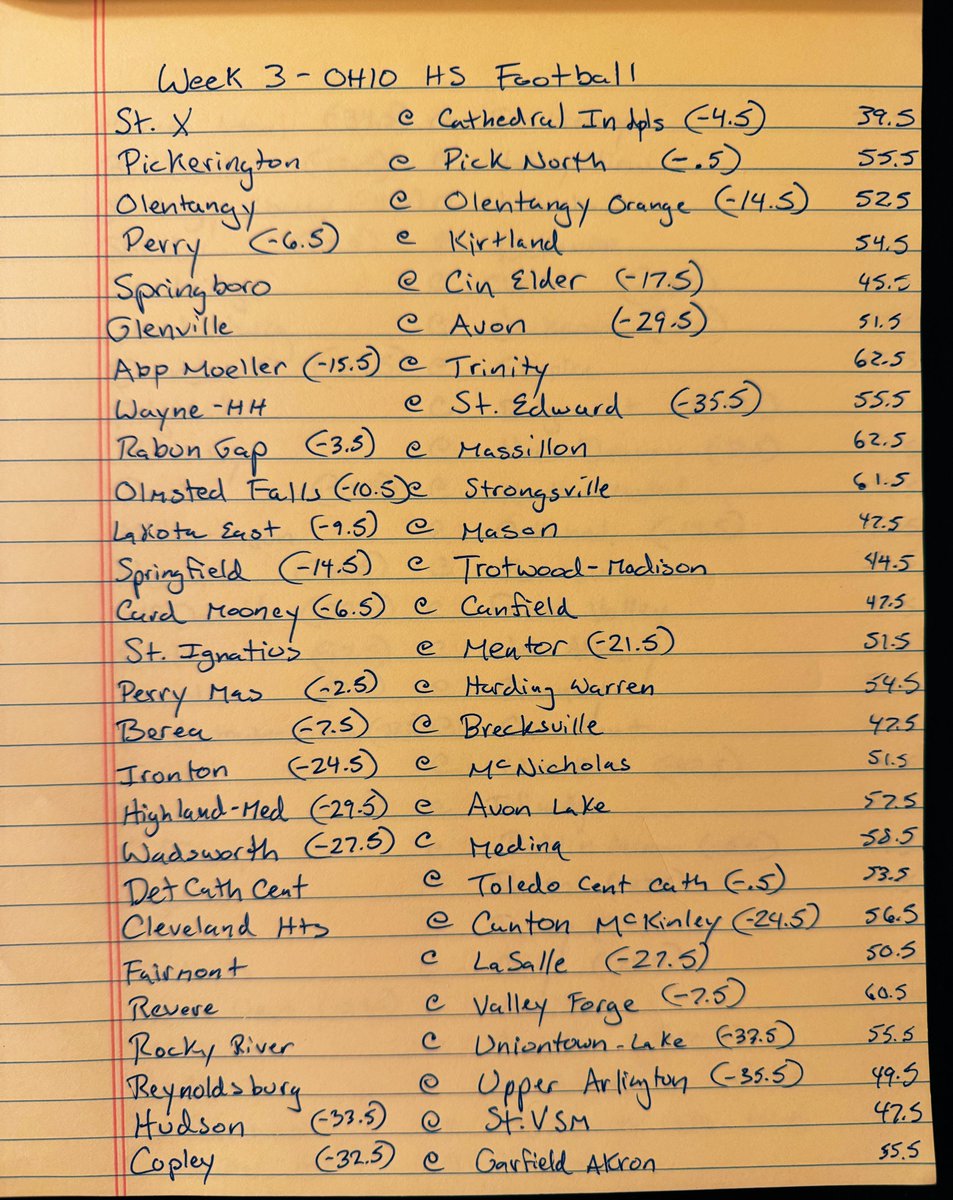 Week 3 - OHIO HS Football
St. X @ Cathedral Indpls (-4.5) 39.5
Pickerington @ Pick North (-.5) 55.5
Olentangy @ Olentangy Orange (-14.5) 52.5
Perry (-6.5) @ Kirtland 54.5
Springboro @ Cin Elder (-17.5) 45.5
Glenville @ Avon (-29.5) 51.5
Abp Moeller (-15.5) @ Trinity 62.5
Wayne-HH @ St. Edward (-35.5) 55.5
Rabun Gap (-3.5) @ Massillon 62.5
Olmsted Falls (-10.5) @ Strongsville 61.5
Lakota East (-9.5) @ Mason 47.5
Springfield (-14.5) @ Trotwood-Madison 44.5
Card Mooney (-6.5) @ Canfield 47.5
St. Ignatius @ Mentor (-21.5) 51.5
Perry Mas (-2.5) @ Harding Warren 54.5
Berea (-7.5) @ Brecksville 47.5
Ironton (-24.5) @ McNicholas 51.5
Highland-Med (-29.5) @ Avon Lake 57.5
Wadsworth (-27.5) @ Medina 58.5
Det Cath Cent @ Toledo Cent Cath (-.5) 53.5
Cleveland Hts @ Canton McKinley (-24.5) 56.5
Fairmont @ LaSalle (-27.5) 50.5
Revere @ Valley Forge (-7.5) 60.5
Rocky River @ Uniontown-Lake (-37.5) 55.5
Reynoldsburg @ Upper Arlington (-35.5) 49.5
Hudson (-33.5) @ St.VSM 47.5
Copley (-32.5) @ Garfield Akron 55.5